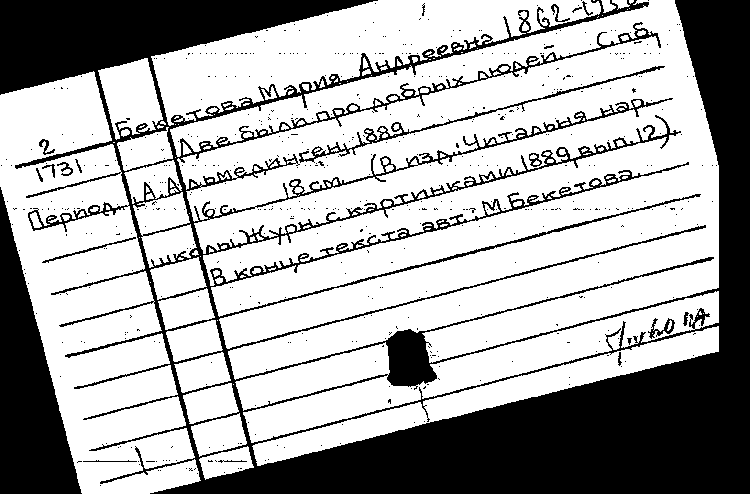 Бекетова, Мария Андреевна 1862-1938
2
1731
Две были про добрых людей. Спб,
Период. А. Альмединген, 1889.
16 с. 18 см. (В изд.: Читальня нар.
школы. Журн. с картинками. 1889, вып. 12).
В конце текста авт.: М. Бекетова.